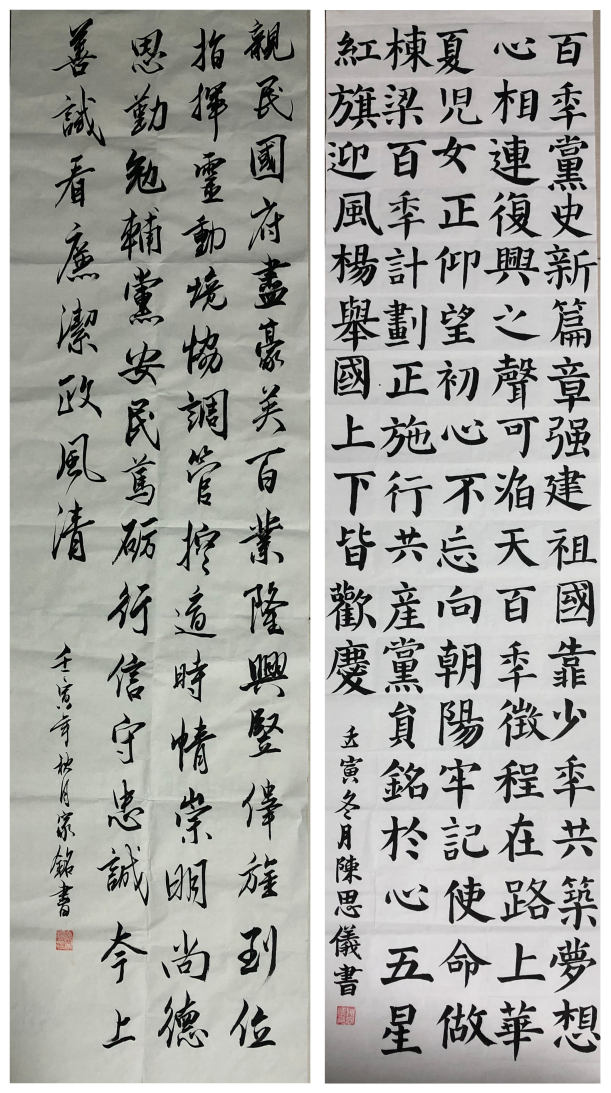 百秊黨史新篇章强建祖國靠少秊共築夢想
心相連復興之聲可滔天百秊徵程在路上華
夏兒女正仰望初心不忘向朝陽牢記使命做
棟梁百秊計劃正施行共產黨員銘於心五星
紅旗迎風楊舉國上下皆歡慶
壬寅冬月陳思儀書
親民國府盡豪英百業隆興豎偉旌到位
指揮靈動境協調管控適時情崇明尚德
思勤勉輔黨安民篤砺行信守忠誠上
善誠看廉潔政風清
壬寅年秋月家銘書